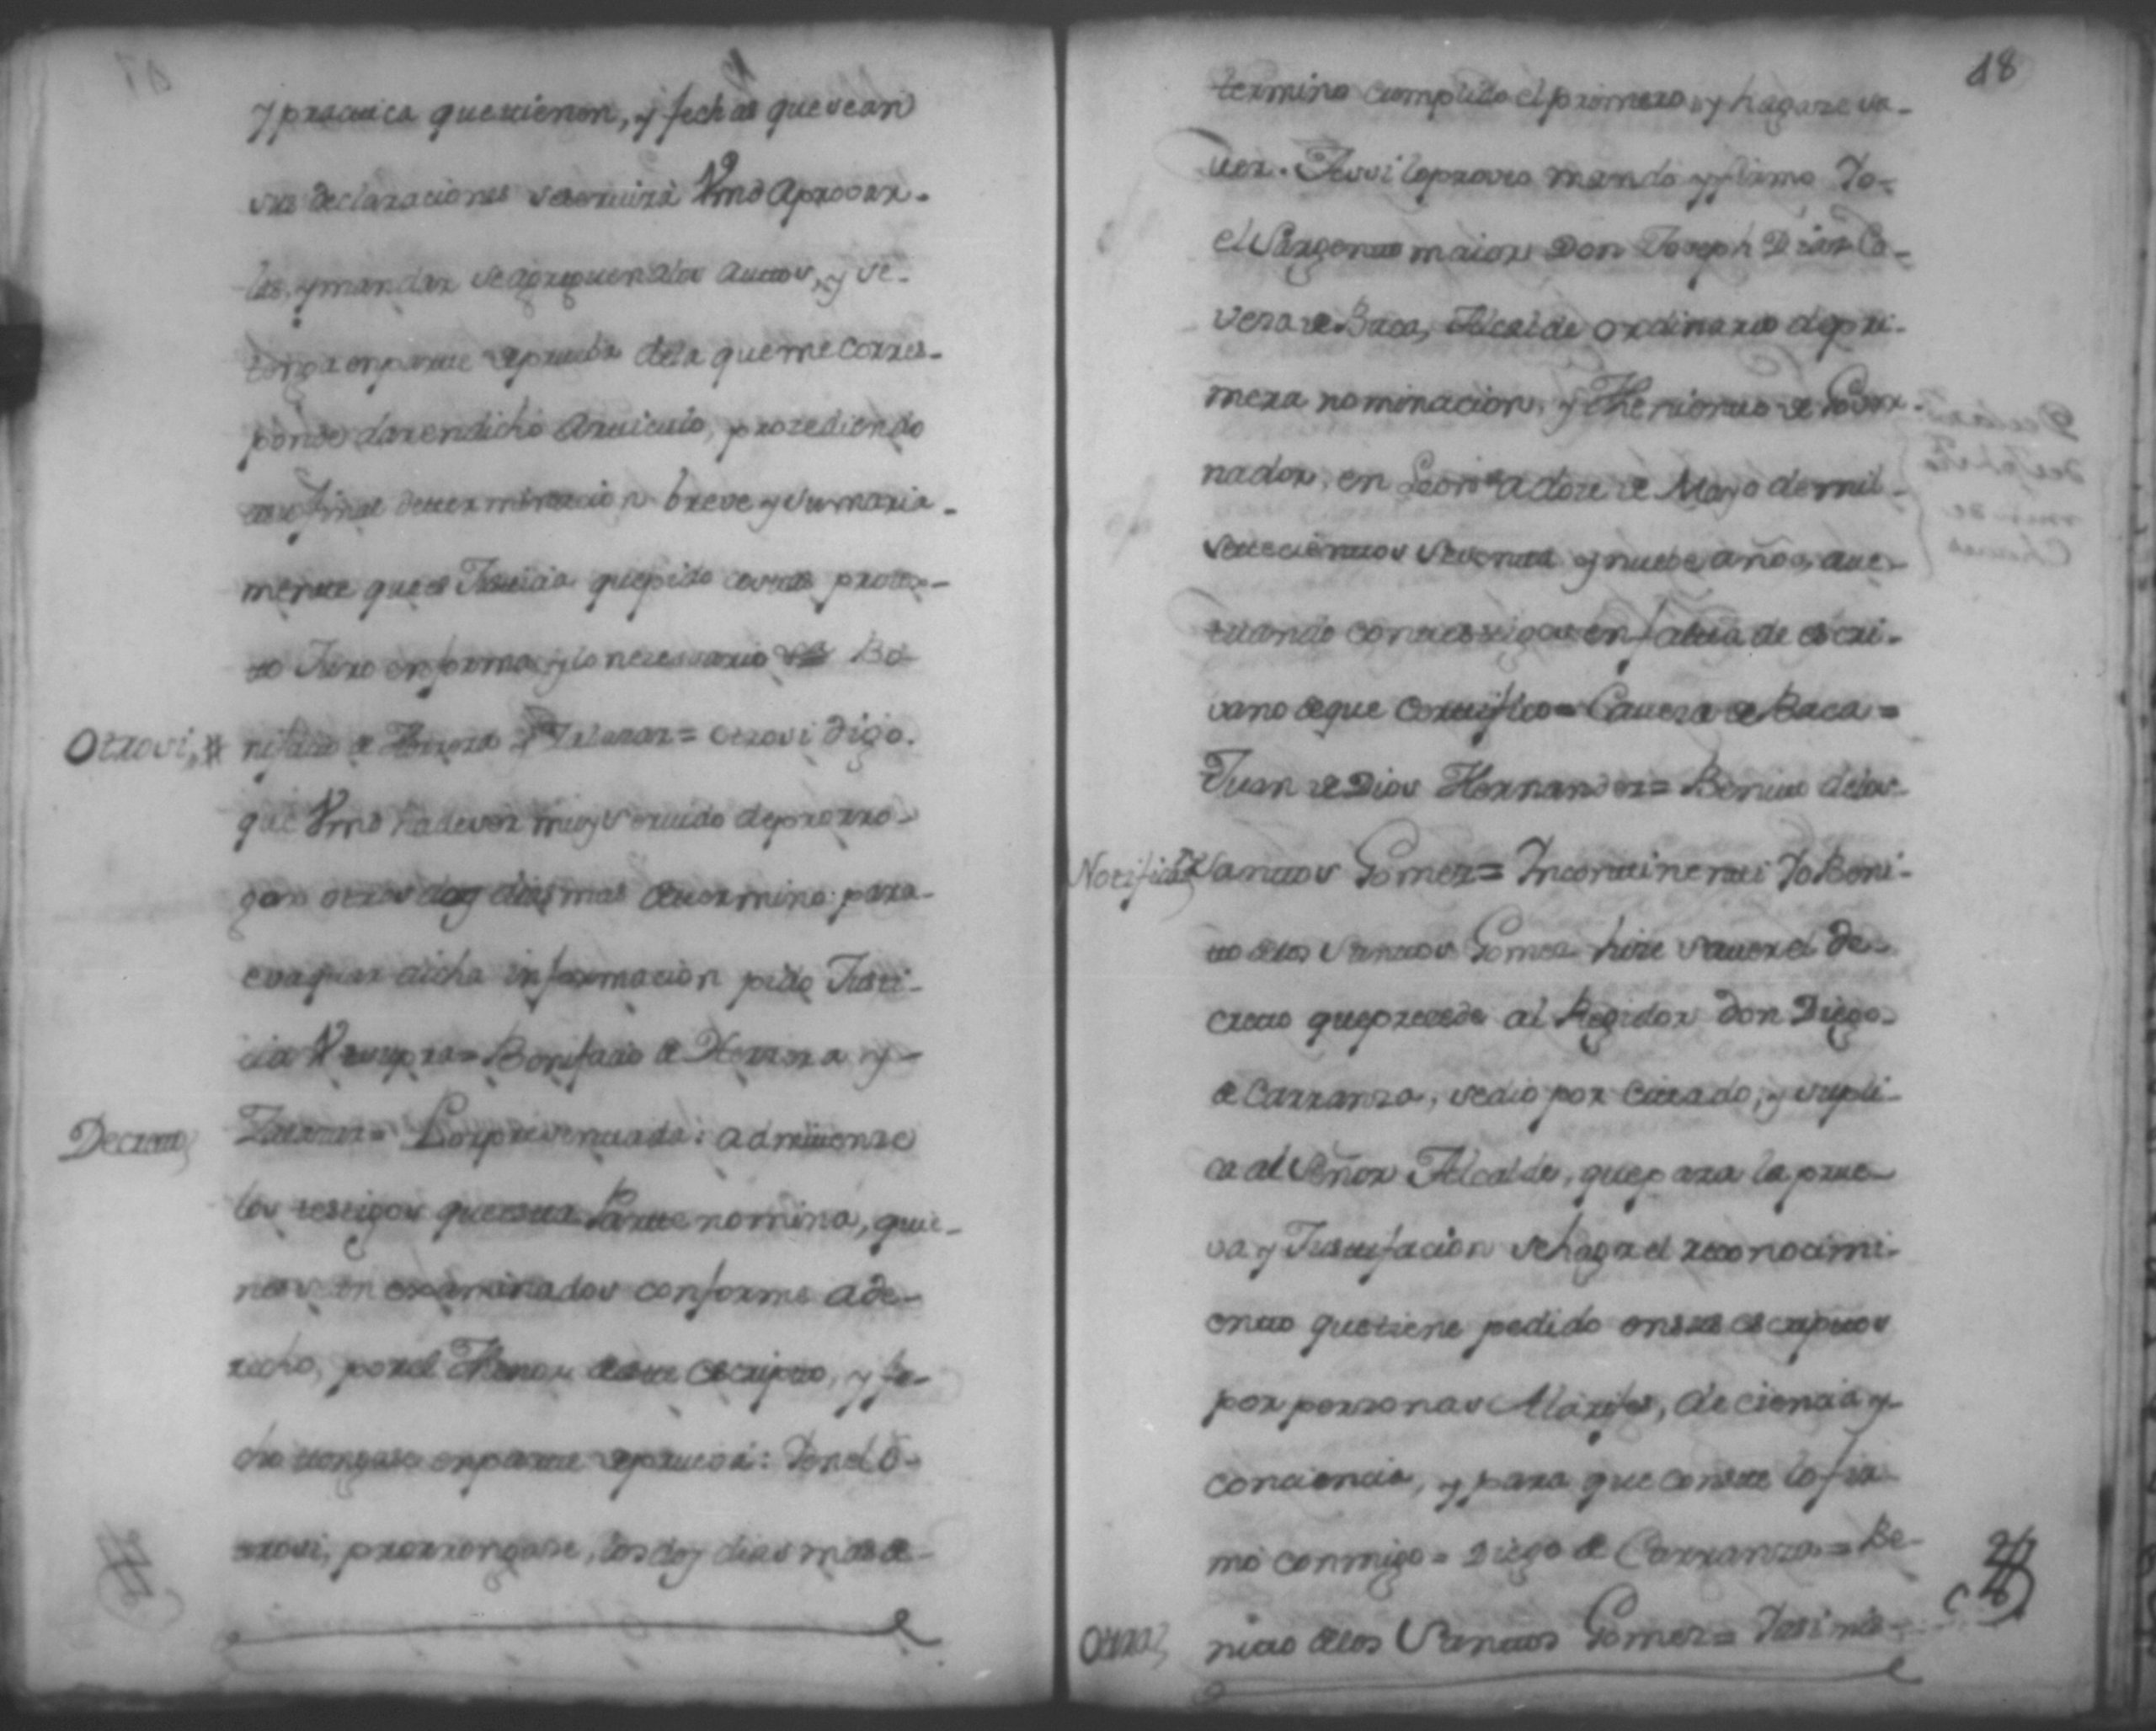 y practica que tienen, y fechas que sean
sus declaraciones se servirá Vmd aprovar-
las, y mandar se agreguen a los autos, y se
tenga en parte de prueba de la que me corres-
ponde dar en dicho Articulo, procediendo
final determinacion breve y sumaria-
mente que es Justicia que pido costas protes-
to Juro en forma, y lo necesario Bo-
Otrosi, # nifacio de Herrera y Zalazar = otrosi digo
que Vmd ha de ser muy servido de prorro-
gar otros doz dias mas de termino para
evaquar dicha informacion pido Justi-
cia Vt supra = Bonifacio de Herrera y
Decreto Zalazar = Por presentada: admitense
los testigos que esta Parte nomina, quie-
nes sean examinados conforme a de-
recho, por el Thenor de este escripto, y fe-
cho tengase en parte de prueva: Y en el O-
trosi, prorrongase, los doz dias mas de
18
termino cumplido el primero, y hagase sa-
ver. Assi lo proveo mando y firmo Yo
el Sargento maior Don Joseph Diaz Ca-
vera de Baca, Alcalde ordinario de pri-
mera nominacion, y Theniente de Gover-
nador, en Leon a doze de Mayo de mil
setecientos sesenta y nuebe años, actu-
tuando con testigos en falta de escri-
vano de que certifico = Cavera de Baca =
Juan de Dios Hernandez = Benito de los
Notificaz Santos Gomez = Incontinenti Yo Beni-
to de los Santos Gomez hize saver el de-
creto que precede al Regidor Don Diego
de Carranza, se dio por citado, y supli-
ca al Señor Alcalde, que para la prue-
va y Justificacion se haga el reconocimi-
ento que tiene pedido en sus escriptos
por personas Alarifes, de ciencia y
conciencia, y para que conste lo fir-
mó conmigo = Diego de Carranza = Be-
Otra nito de los Santos Gomez = Y asi mis-